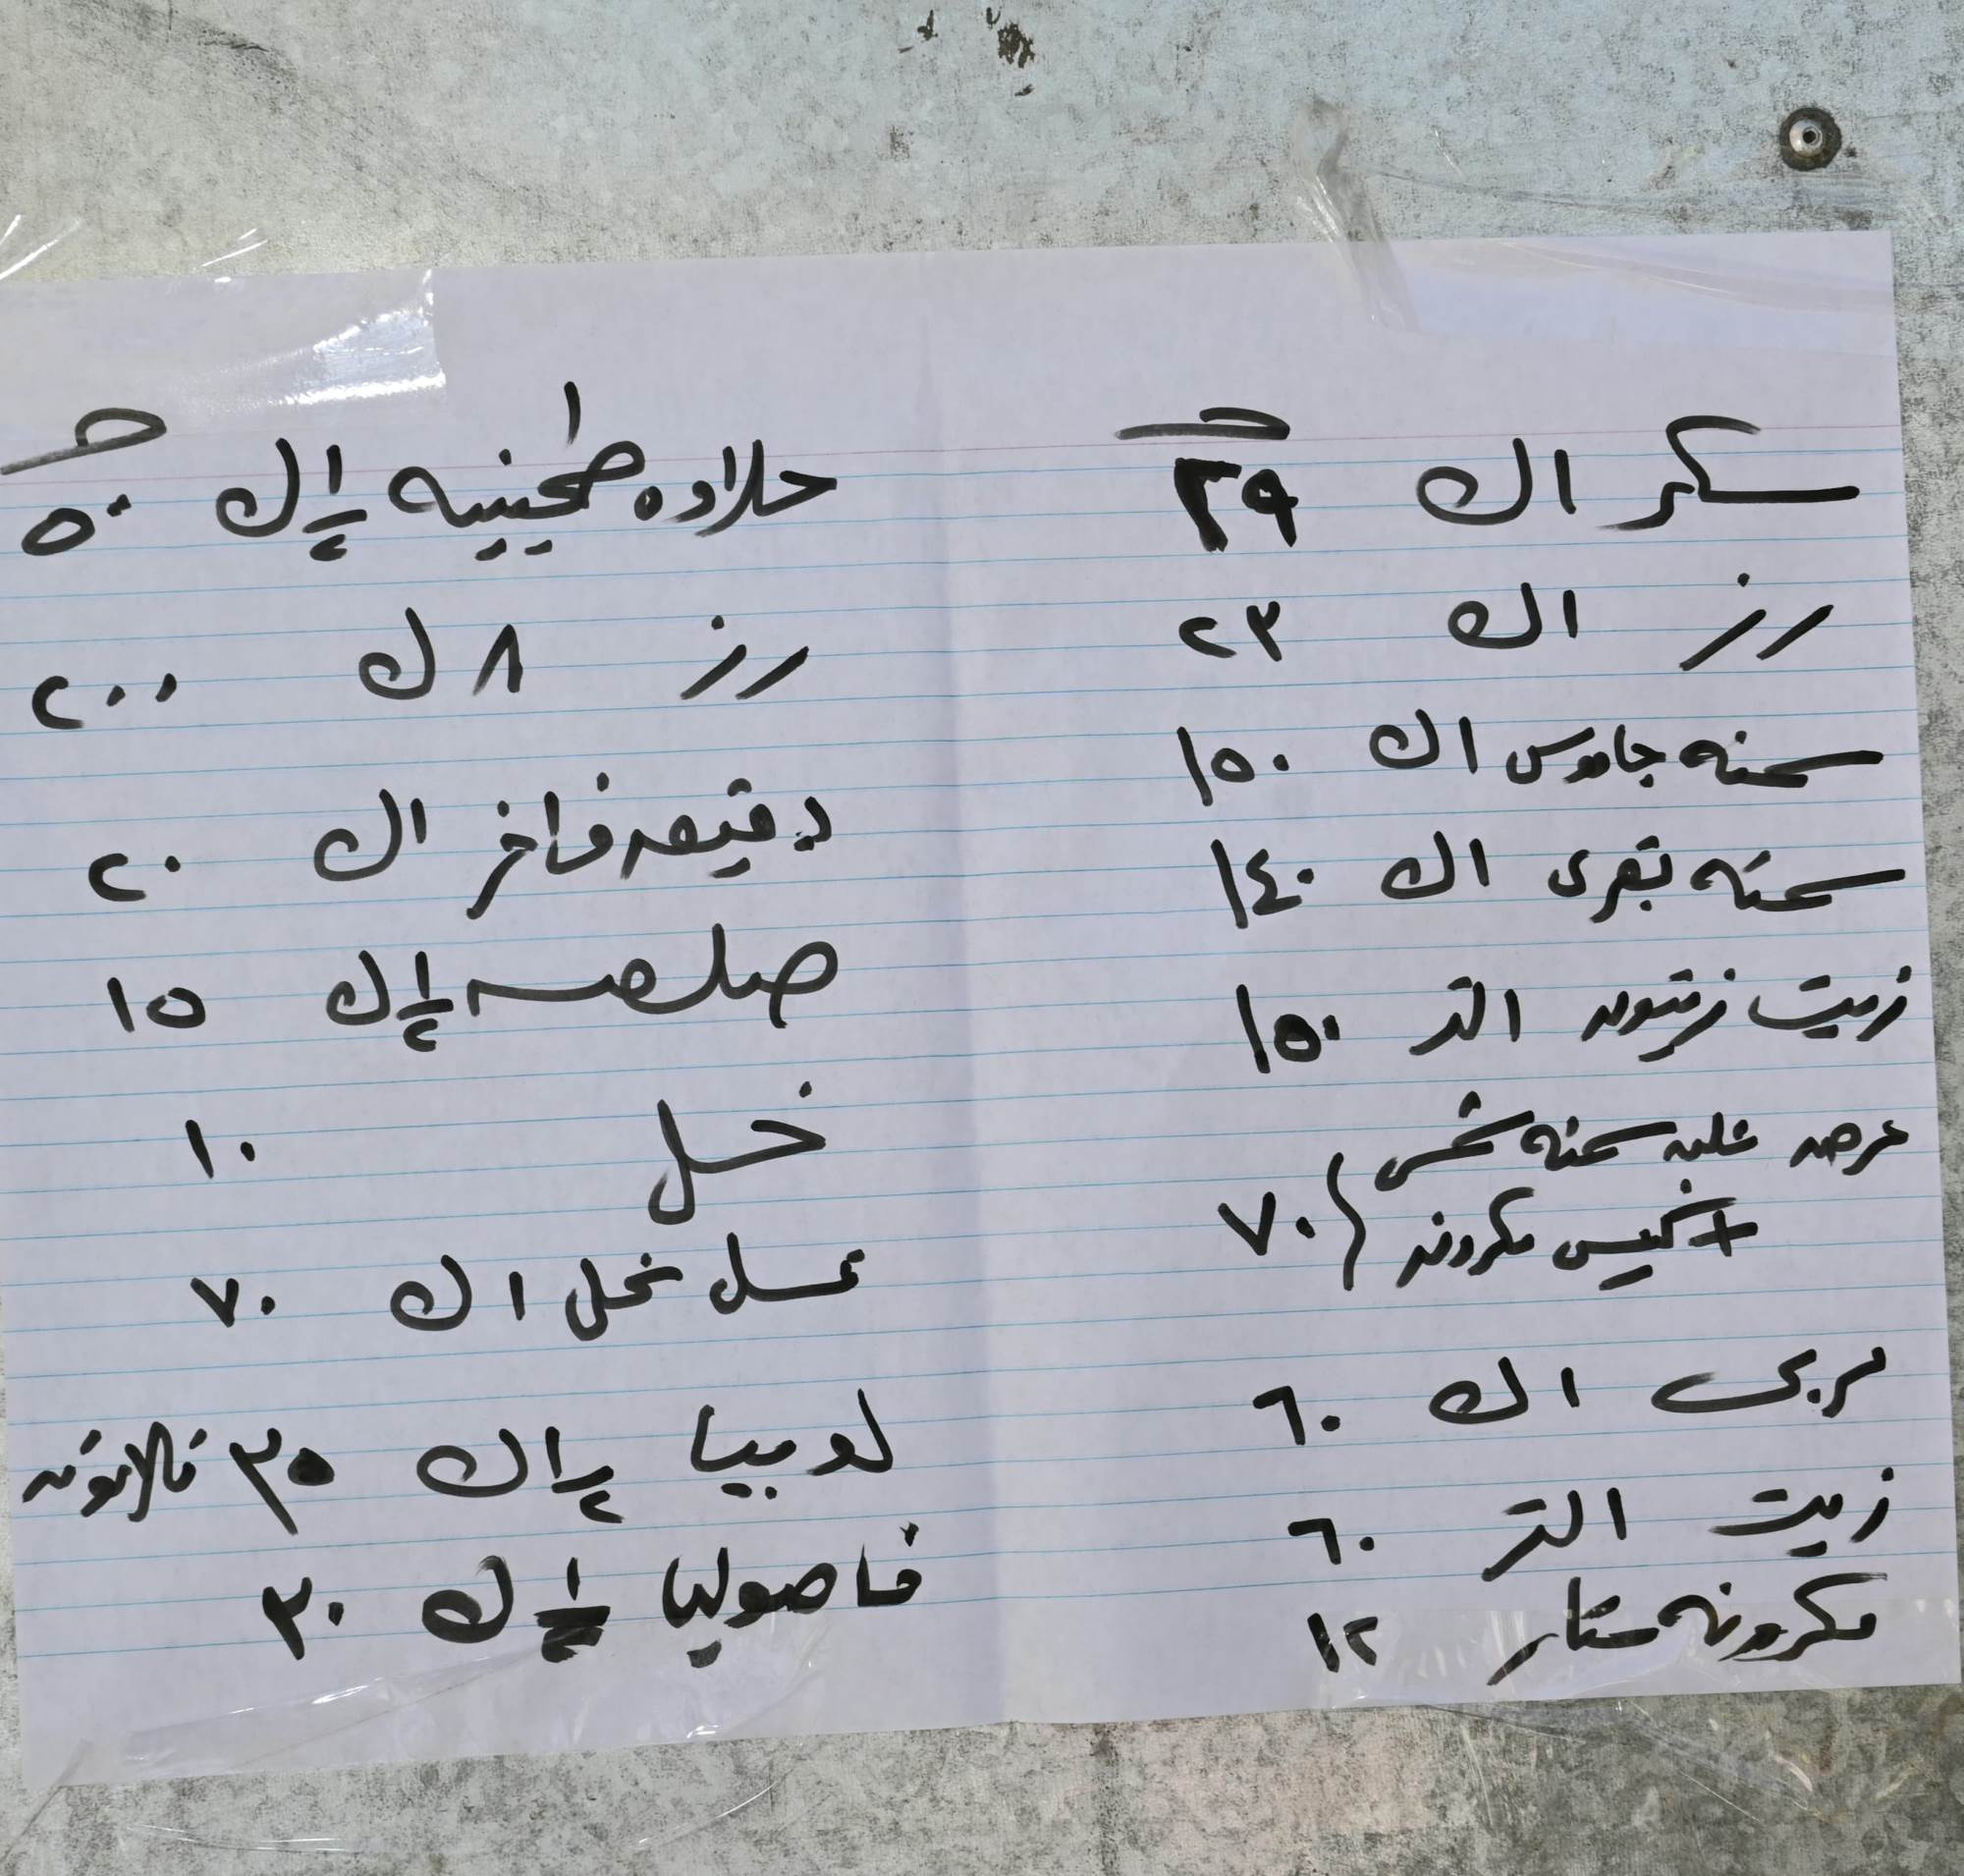 جـ
سكر ١ك ٢٩
رز ١ك ٢٣
سمنه جاموس ١ك ١٥٠
سمنه بقرى ١ك ١٤٠
زيت زيتون ١لتر ١٥٠
عرض علبه سمنه شمس
+ كيس مكرونه ) ٧٠
مربى ١ك ٦٠
زيت ١لتر ٦٠
مكرونه ستار ١٢
جـ
حلاوه طحينيه ١/٢ك ٥٠
رز ٨ك ٢٠٠
دقيق فاخر ١ك ٢٠
صلصه ١/٢ك ١٥
خل ١٠
عسل نحل ١ك ٧٠
لوبيا ١/٢ك ٣٥
فاصوليا ١/٢ك ٣٠